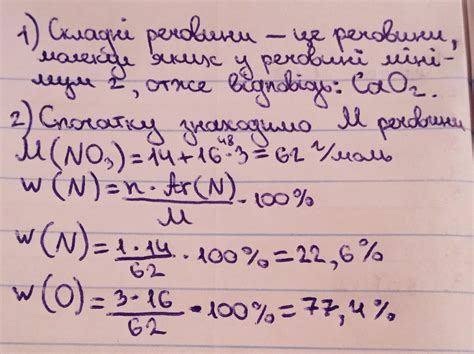 1) Складні речовини – це речовини,
молекул яких у речовині міні-
мум 2, отже відповідь: CaO₂.
2) Спочатку знаходимо M речовини
M(NO₃)=14+16·3=62 г/моль
48
W(N)=n·Ar(N)/M·100%
W(N)=1·14/62·100%=22,6%
W(O)=3·16/62·100%=77,4%